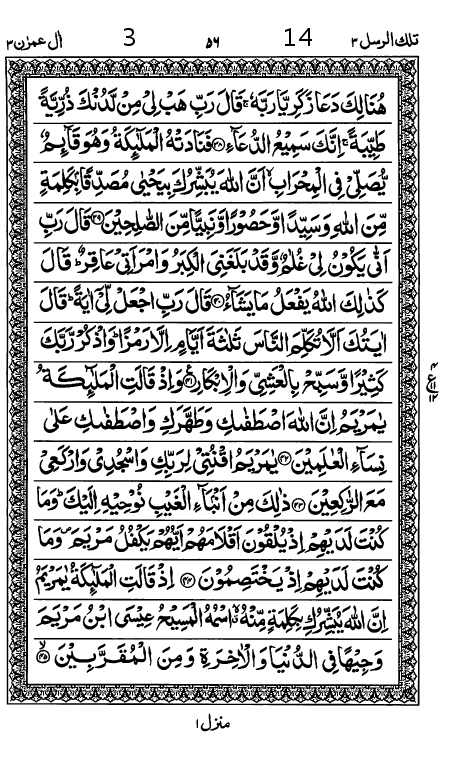 تلك الرسل ٣ 14 ٥٦ 3 ال عمرٰن ٣
هُنَالِكَ دَعَا زَكَرِيَّا رَبَّهٗ ۚ قَالَ رَبِّ هَبْ لِیْ مِنْ لَّدُنْكَ ذُرِّیَّةً
طَیِّبَةً ۚ اِنَّكَ سَمِیْعُ الدُّعَآءِ ﴿۳۸﴾ فَنَادَتْهُ الْمَلٰٓئِكَةُ وَهُوَ قَآئِمٌ
یُّصَلِّیْ فِی الْمِحْرَابِ ۙ اَنَّ اللّٰهَ یُبَشِّرُكَ بِیَحْیٰی مُصَدِّقًۢا بِكَلِمَةٍ
مِّنَ اللّٰهِ وَسَیِّدًا وَّحَصُوْرًا وَّنَبِیًّا مِّنَ الصّٰلِحِیْنَ ﴿۳۹﴾ قَالَ رَبِّ
اَنّٰی یَكُوْنُ لِیْ غُلٰمٌ وَّقَدْ بَلَغَنِیَ الْكِبَرُ وَامْرَاَتِیْ عَاقِرٌ ؕ قَالَ
كَذٰلِكَ اللّٰهُ یَفْعَلُ مَا یَشَآءُ ﴿۴۰﴾ قَالَ رَبِّ اجْعَلْ لِّیْۤ اٰیَةً ؕ قَالَ
اٰیَتُكَ اَلَّا تُكَلِّمَ النَّاسَ ثَلٰثَةَ اَیَّامٍ اِلَّا رَمْزًا ؕ وَاذْكُرْ رَّبَّكَ
كَثِیْرًا وَّسَبِّحْ بِالْعَشِیِّ وَالْاِبْكَارِ ﴿۴۱﴾ وَاِذْ قَالَتِ الْمَلٰٓئِكَةُ
یٰمَرْیَمُ اِنَّ اللّٰهَ اصْطَفٰىكِ وَطَهَّرَكِ وَاصْطَفٰىكِ عَلٰی
نِسَآءِ الْعٰلَمِیْنَ ﴿۴۲﴾ یٰمَرْیَمُ اقْنُتِیْ لِرَبِّكِ وَاسْجُدِیْ وَارْكَعِیْ
مَعَ الرّٰكِعِیْنَ ﴿۴۳﴾ ذٰلِكَ مِنْ اَنْۢبَآءِ الْغَیْبِ نُوْحِیْهِ اِلَیْكَ ؕ وَمَا
كُنْتَ لَدَیْهِمْ اِذْ یُلْقُوْنَ اَقْلَامَهُمْ اَیُّهُمْ یَكْفُلُ مَرْیَمَ ۪ وَمَا
كُنْتَ لَدَیْهِمْ اِذْ یَخْتَصِمُوْنَ ﴿۴۴﴾ اِذْ قَالَتِ الْمَلٰٓئِكَةُ یٰمَرْیَمُ
اِنَّ اللّٰهَ یُبَشِّرُكِ بِكَلِمَةٍ مِّنْهُ ۖۗ اسْمُهُ الْمَسِیْحُ عِیْسَی ابْنُ مَرْیَمَ
وَجِیْهًا فِی الدُّنْیَا وَالْاٰخِرَةِ وَمِنَ الْمُقَرَّبِیْنَ ﴿۴۵﴾ۙ
منزل ۱